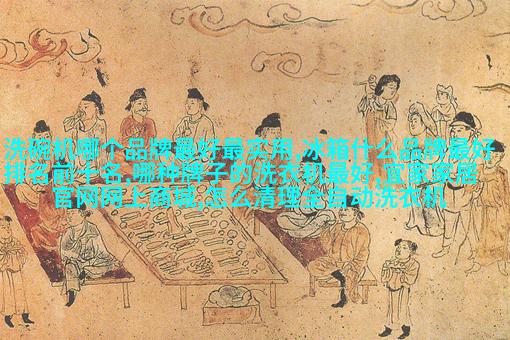 洗碗机哪个品牌最好最实用,冰箱什么品牌最好
排名前十名,哪种牌子的洗衣机最好,宜家家居
官网网上商城,怎么清理全自动洗衣机